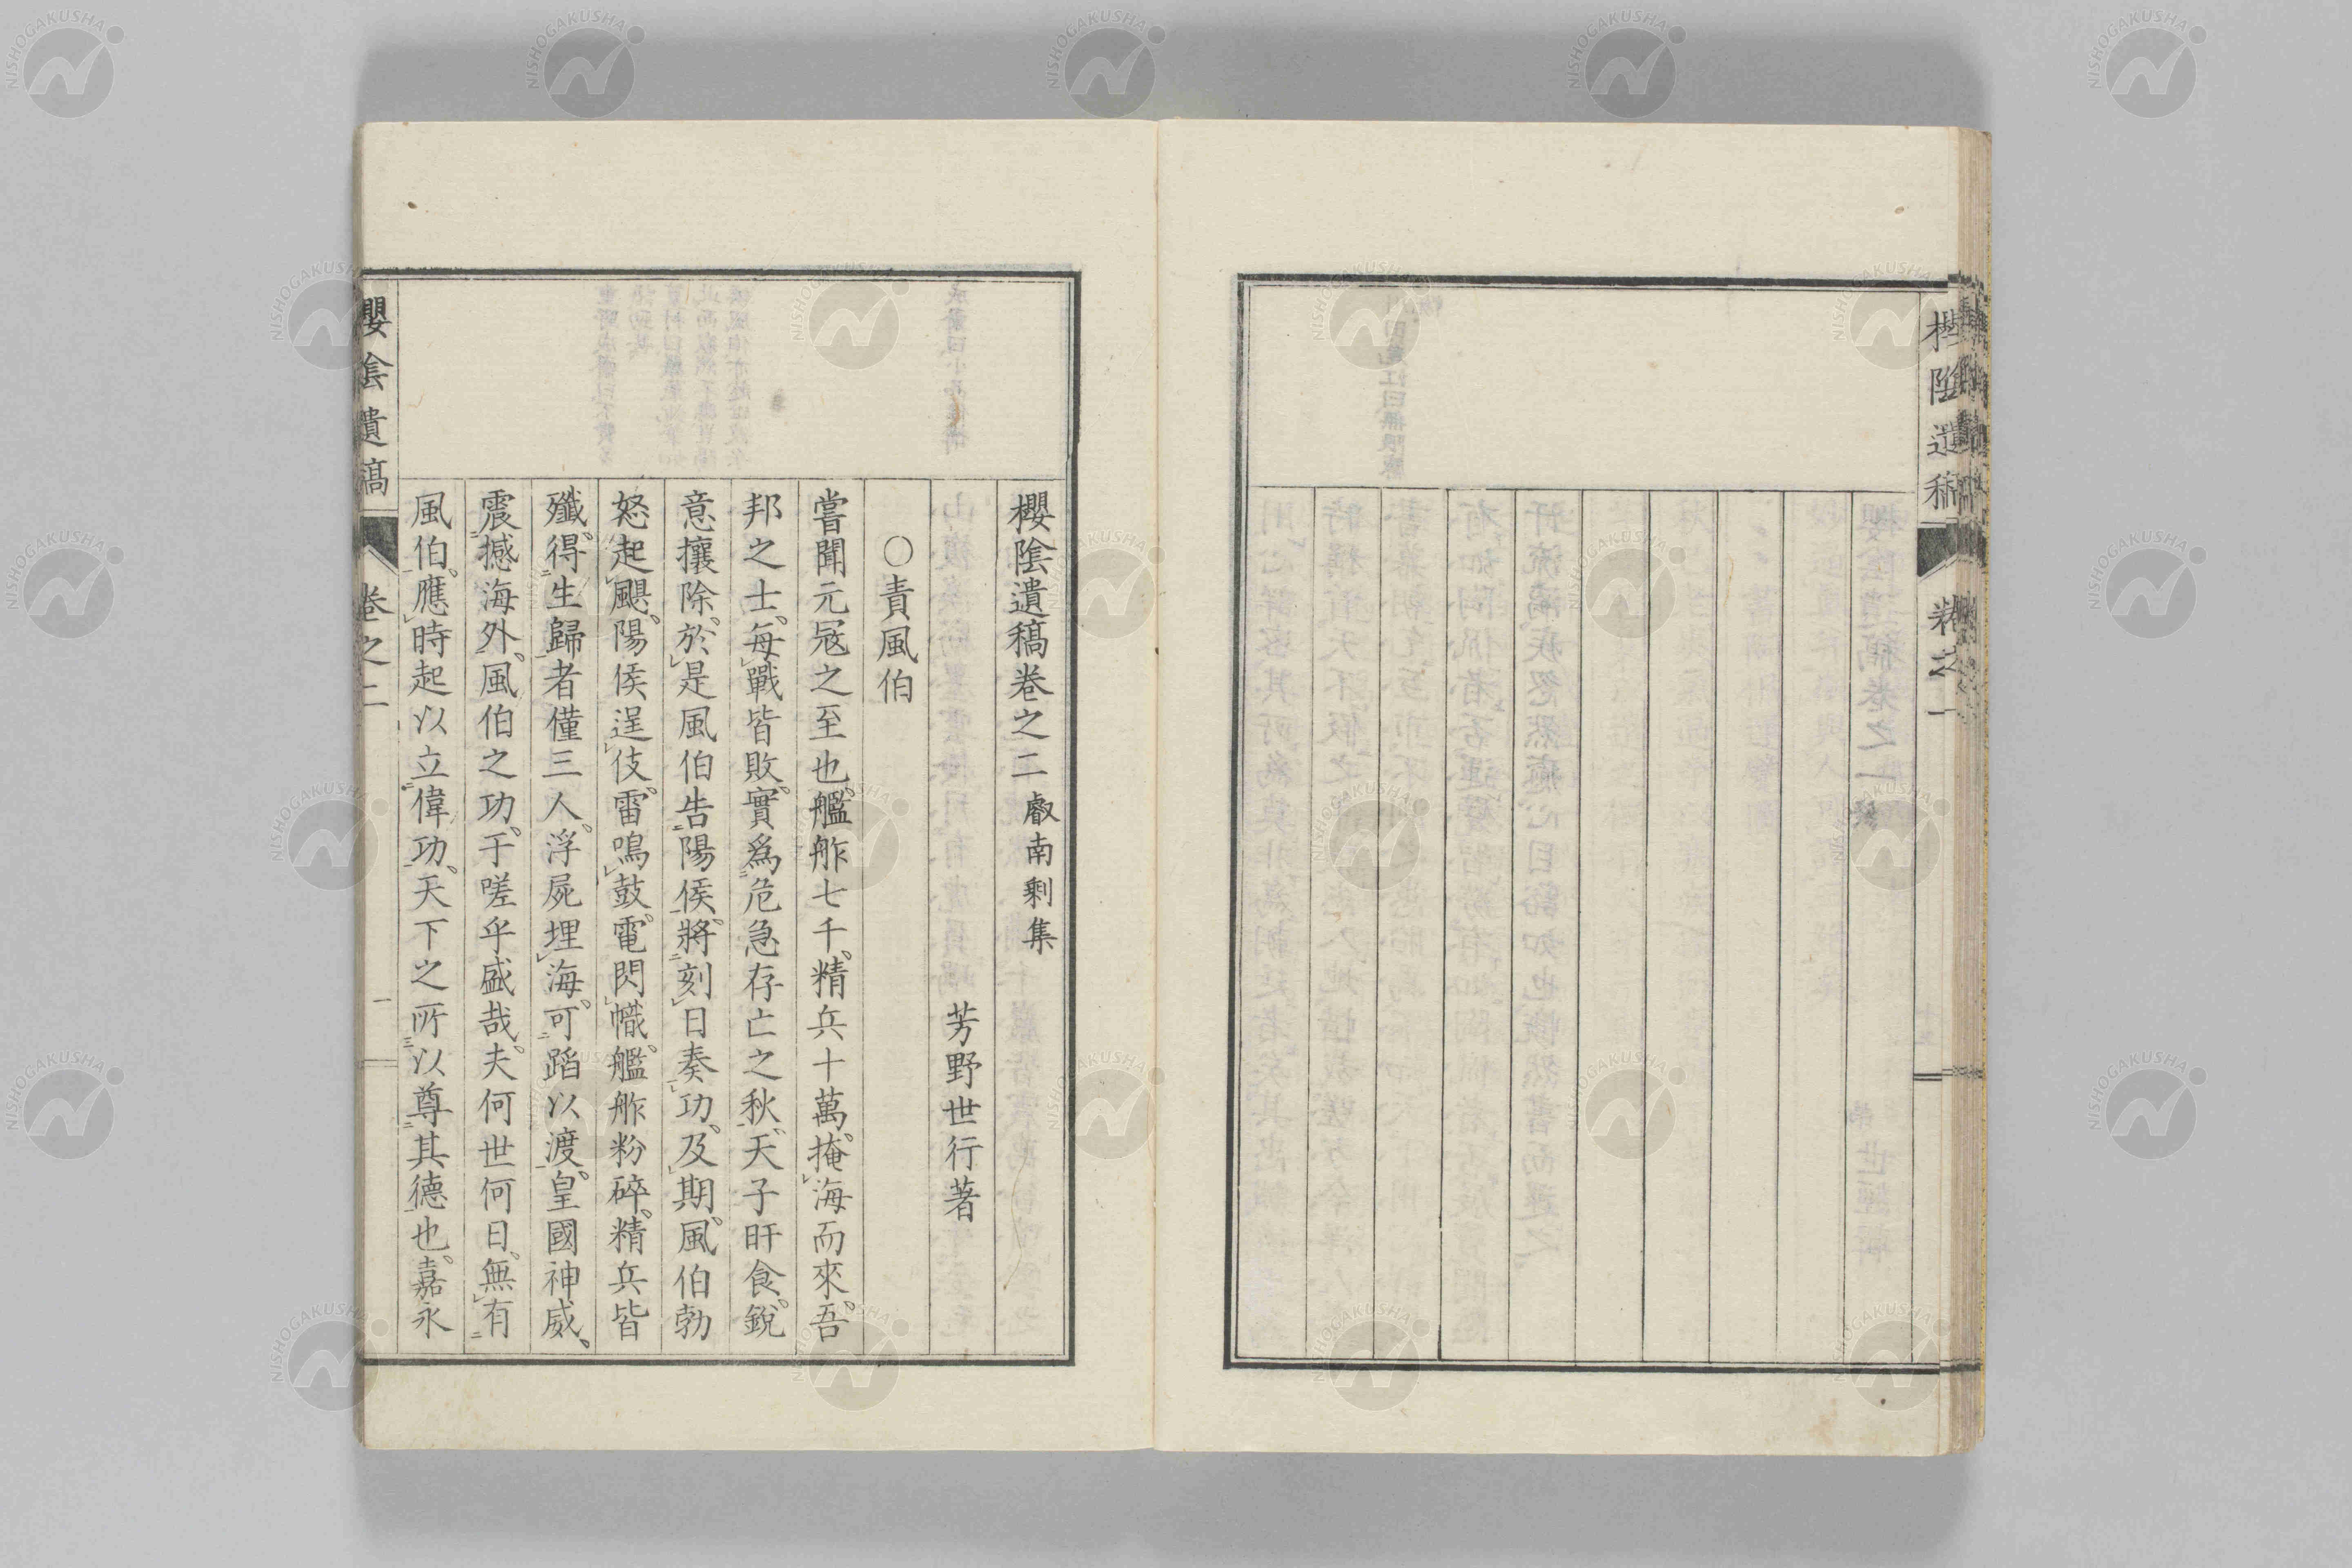 櫻陰遺稿
卷之一
櫻陰遺稿卷之二 叡南剩集
芳野世行著
○責風伯
嘗聞元寇之至也。艦舴七千。精兵十萬。掩海而來。吾
邦之士。每戰皆敗。實爲危急存亡之秋。天子旰食。銳
意攘除。於是風伯告陽侯。將刻日奏功。及期。風伯勃
怒起颶。陽侯逞伎。雷鳴鼓。電閃幟。艦舴粉碎。精兵皆
殲。得生歸者僅三人。浮屍埋海。可蹈以渡。皇國神威、
震撼海外。風伯之功。于嗟乎盛哉。夫何世何日。無有
風伯。應時起以立偉功。天下之所以尊其德也。嘉永
櫻陰遺稿
卷之二
一
NISHOGAKUSHA